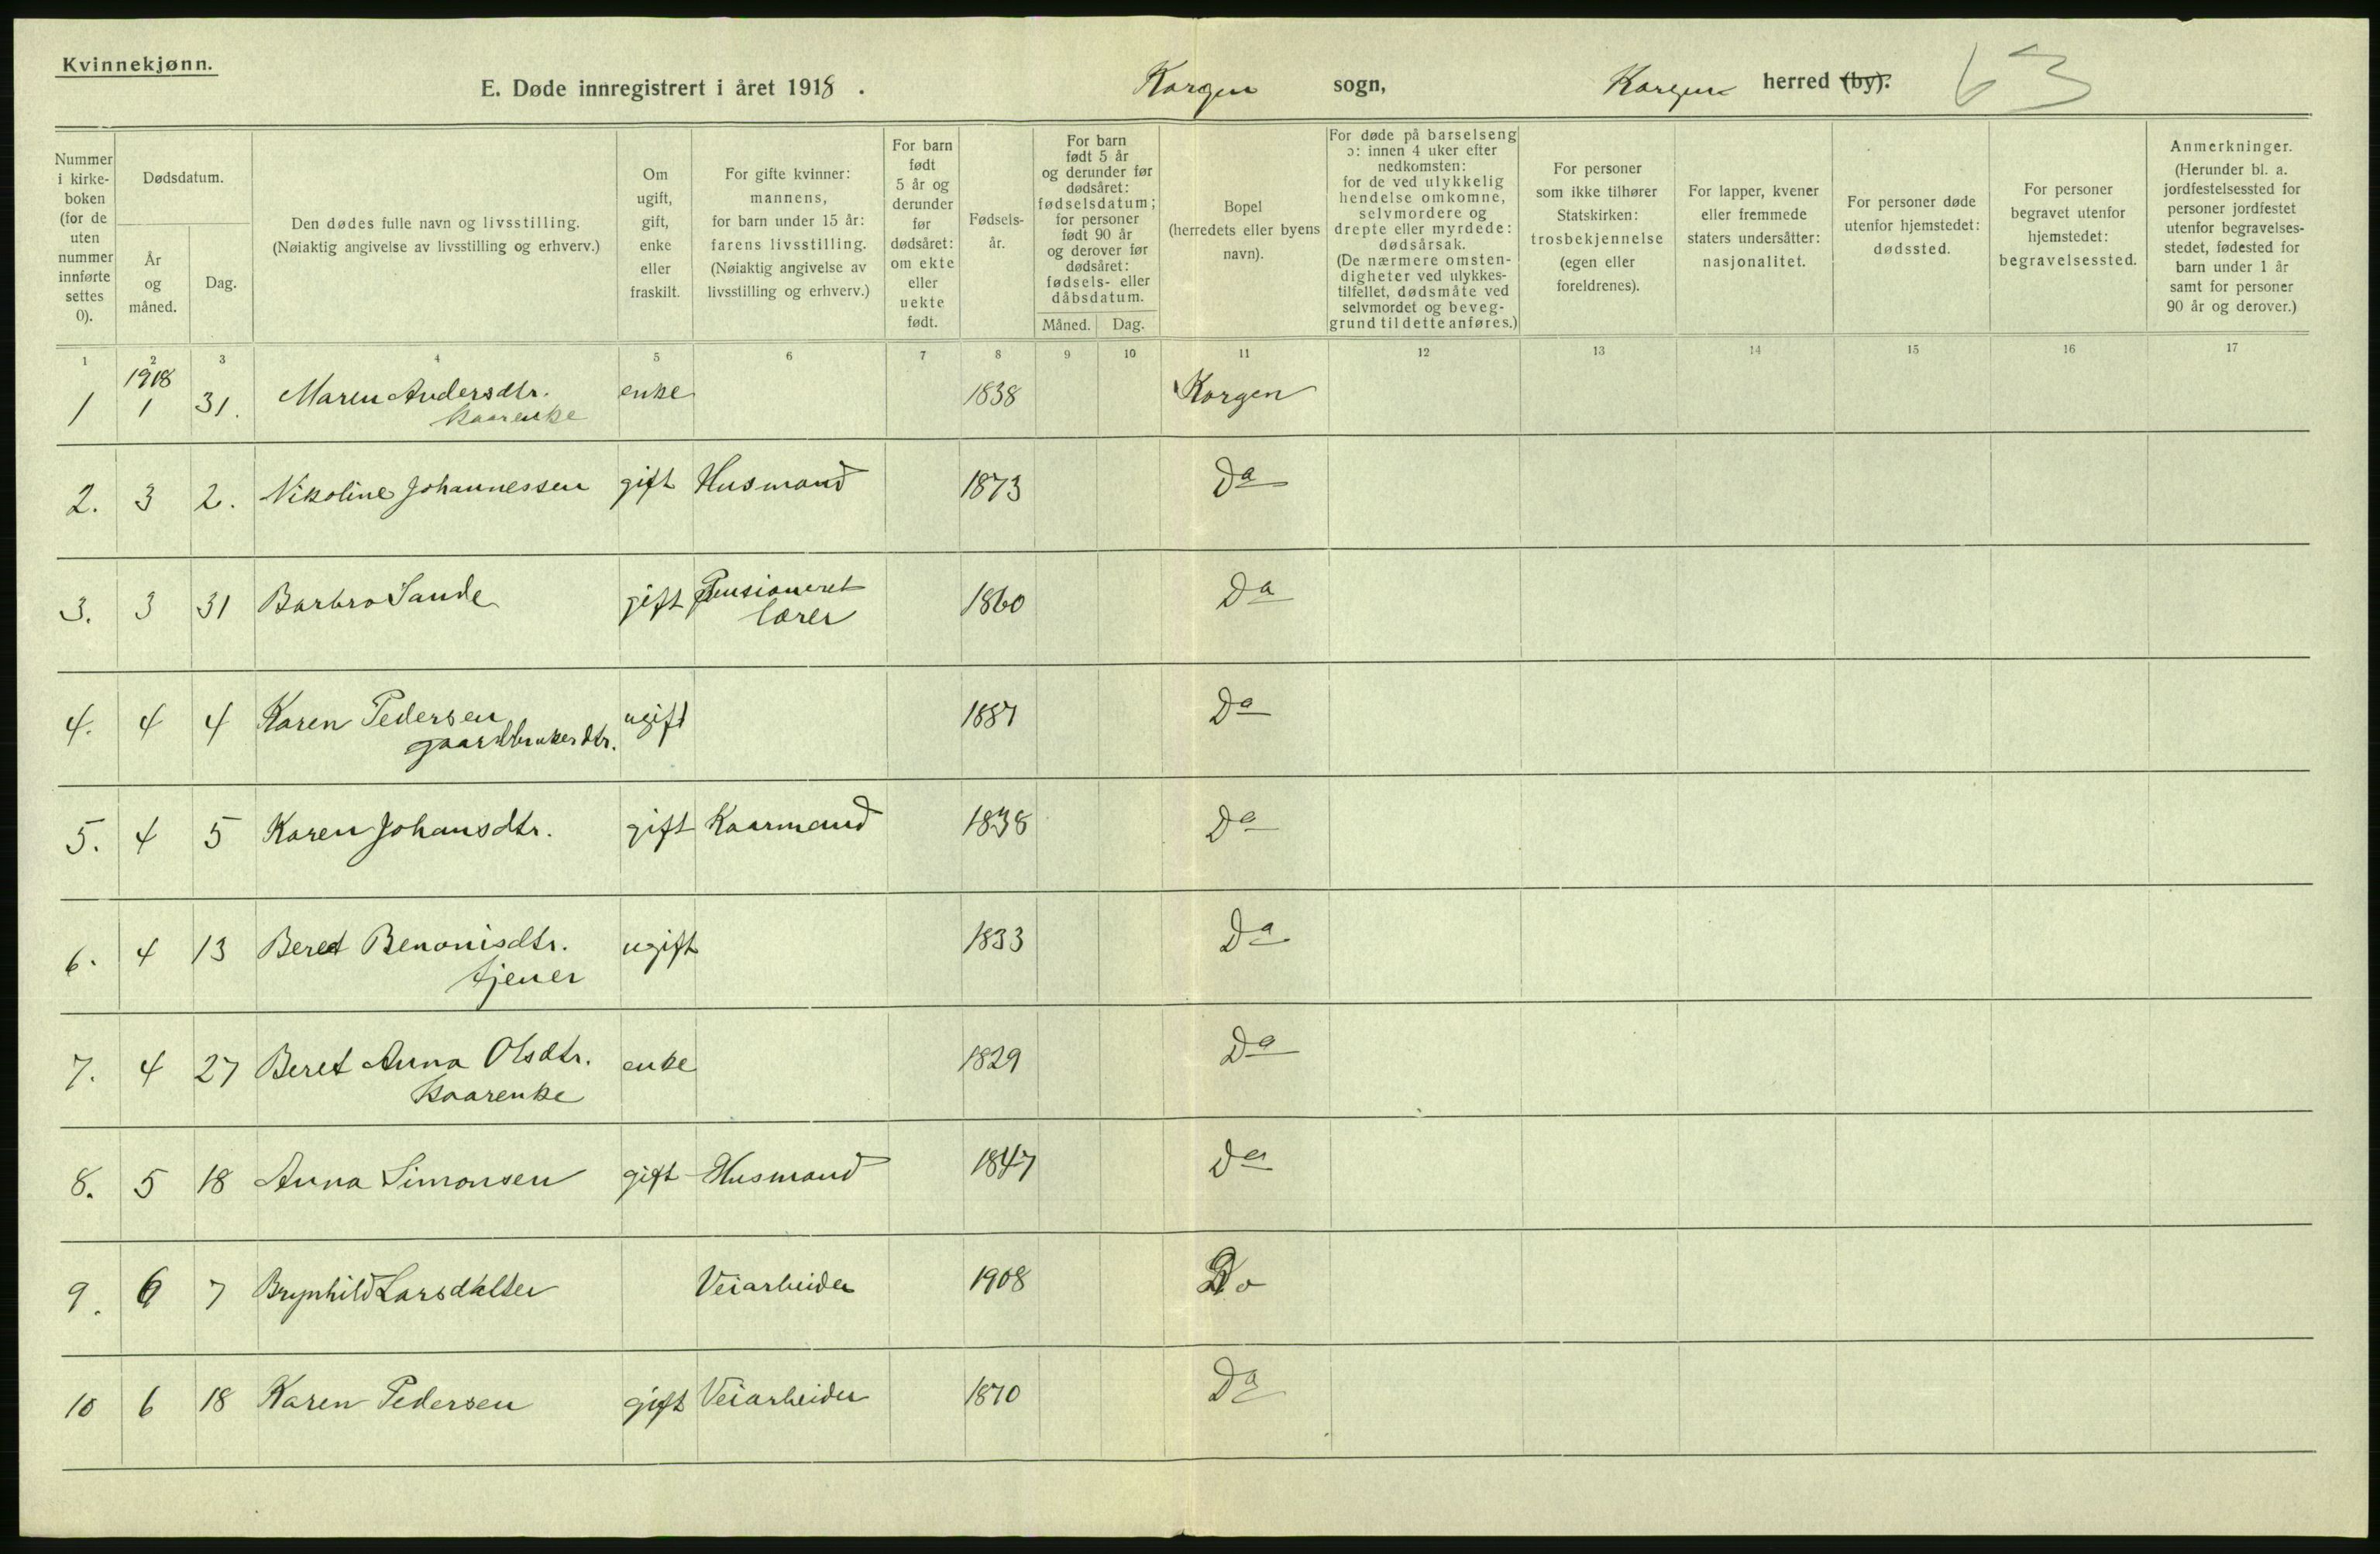 Kvinnekjønn.
E. Døde innregistrert i året 1918 . Korgen sogn, Korgen herred (by). 63
Nummer i kirke- boken (for de uten nummer innførte settes 0).
Dødsdatum.
År og måned.
Dag.
Den dødes fulle navn og livsstilling.
(Nøiaktig angivelse av livsstilling og erhverv.)
Om ugift, gift, enke eller fraskilt.
For gifte kvinner: mannens, for barn under 15 år: farens livsstilling. (Nøiaktig angivelse av livsstilling og erhverv.)
For barn født 5 år og derunder før dødsåret: om ekte eller uekte født.
Fødsels- år.
For barn født 5 år og derunder før dødsåret: fødselsdatum; for personer født 90 år og derover før dødsåret: fødsels- eller dåbsdatum.
Måned. Dag.
Bopel (herredets eller byens navn).
For døde på barselseng ɔ: innen 4 uker efter nedkomsten: for de ved ulykkelig hendelse omkomne, selvmordere og drepte eller myrdede: dødsårsak. (De nærmere omsten- digheter ved ulykkes- tilfellet, dødsmåte ved selvmordet og beveg- grund til dette anføres.)
For personer som ikke tilhører Statskirken: trosbekjennelse (egen eller foreldrenes).
For lapper, kvener eller fremmede staters undersåtter: nasjonalitet.
For personer døde utenfor hjemstedet: dødssted.
For personer begravet utenfor hjemstedet: begravelsessted.
Anmerkninger. (Herunder bl. a. jordfestelsessted for personer jordfestet utenfor begravelses- stedet, fødested for barn under 1 år samt for personer 90 år og derover.)
1 2 3 4 5 6 7 8 9 10 11 12 13 14 15 16 17
1918
1 1 31. Maren Andersdtr. enke 1838 Korgen
kaarenke
2. 3 2. Nikoline Johannessen gift Husmand 1873 Do
3. 3 31 Barbro Sande gift Pensioneret 1860 Do
lærer
4. 4 4 Karen Pedersen ugift 1887 Do
gaardbrukerdtr.
5. 4 5 Karen Johansdtr. gift Kaarmand 1838 Do
6. 4 13 Beret Benonisdtr. ugift 1833 Do
tjener
7. 4 27 Beret Anna Olsdtr. enke 1829 Do
kaarenke
8. 5 18 Anna Simonsen gift Husmand 1847 Do
9. 6 7 Brynhild Larsdatter Veiarbeider 1908 Do
10 6 18 Karen Pedersen gift Veiarbeider 1870 Do